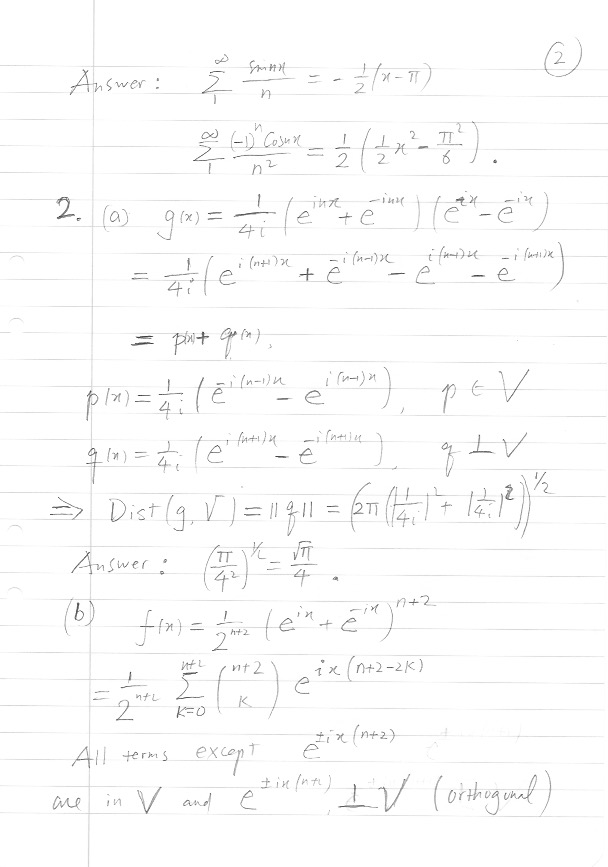 ②
Answer: ∑_1^∞ sin nx / n = - 1/2 (x-π)
∑_1^∞ (-1)^n cos nx / n^2 = 1/2 (1/2 x^2 - π^2/6).
2. (a) g(x) = 1/4i (e^{inx} + e^{-inx}) (e^{ix} - e^{-ix})
= 1/4i (e^{i(n+1)x} + e^{-i(n-1)x} - e^{i(n-1)x} - e^{-i(n+1)x})
= p(x) + q(x),
p(x) = 1/4i (e^{-i(n-1)x} - e^{i(n-1)x}), p ∈ V
q(x) = 1/4i (e^{i(n+1)x} - e^{-i(n+1)x}), q ⊥ V
⇒ Dist(g, V) = ||q|| = (2π (|1/4i|^2 + |1/4i|^2))^{1/2}
Answer: (π/4^2)^{1/2} = √π/4.
(b) f(x) = 1/2^{n+2} (e^{ix} + e^{-ix})^{n+2}
= 1/2^{n+2} ∑_{k=0}^{n+2} (n+2 K) e^{ix(n+2-2K)}
All terms except e^{±ix(n+2)}
are in V and e^{±ix(n+2)} ⊥ V (orthogonal)